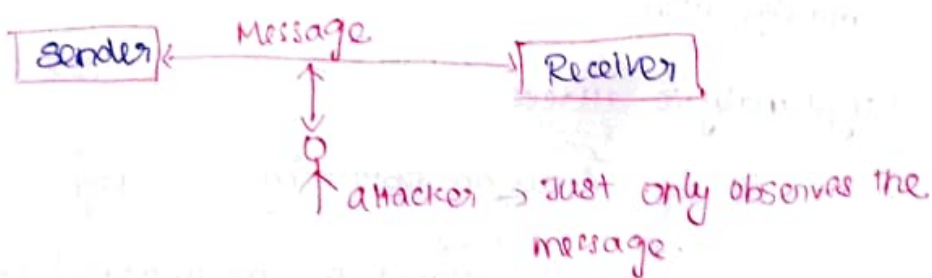 Message
Sender
Receiver
attacker → Just only observes the
message.